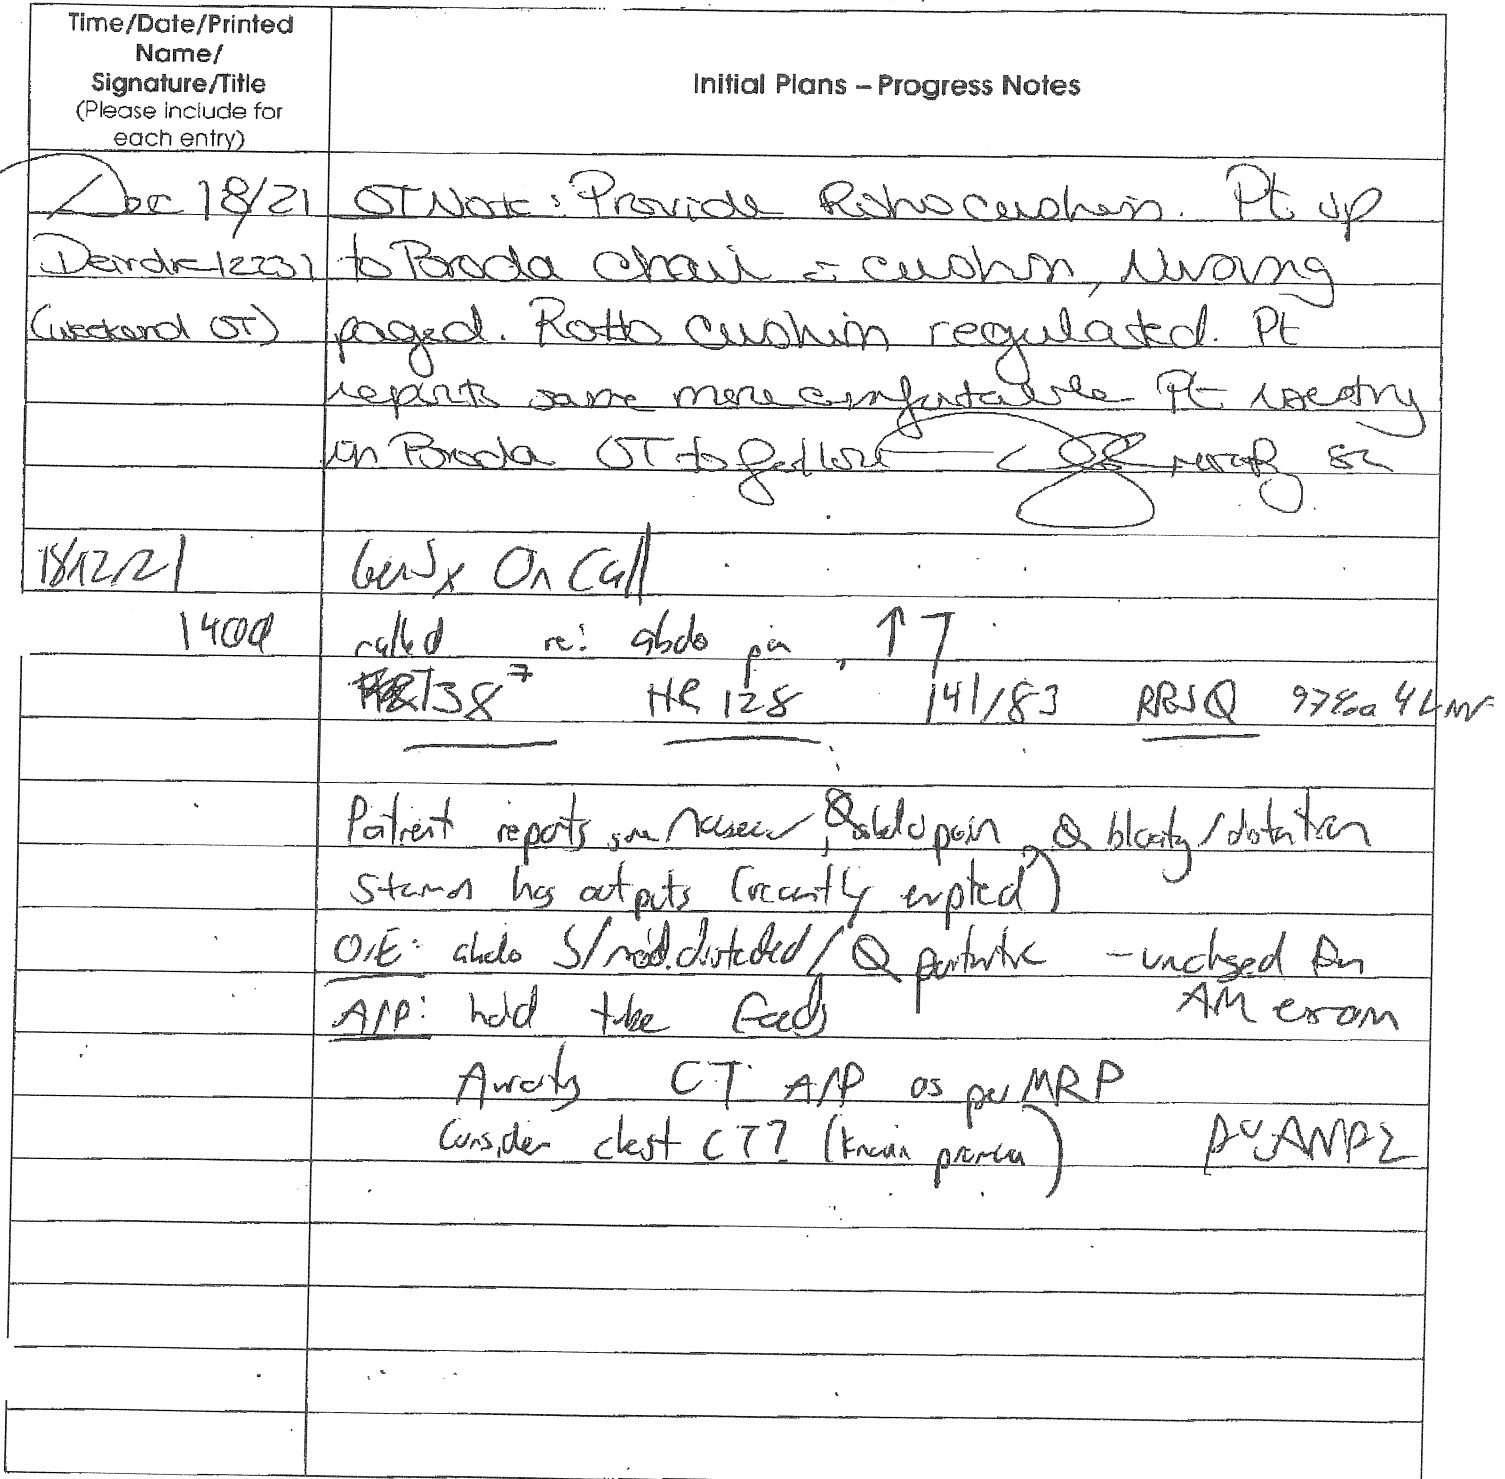 Time/Date/Printed
Name/
Signature/Title
(Please include for
each entry)
Initial Plans – Progress Notes
Dec 18/21 OT Note: Provide Roho cushion. Pt up
Deirdre 12231 to Broda chair c cushion, Nursing
(weekend OT) paged. Roho cushion regulated. Pt
reports same more comfortable Pt
in Broda OT to follow
18/12/21 Gen Sx On Call
1400 called re: abdo pain, ↑ T
T38⁷ HR 128 141/83 RR 97% on 4L NP
Patient reports some nausea, Ø abdo pain, Ø bloating/distention
Stoma has outputs (recently emptied)
O/E: abdo S/mod. distended/Ø peritonitic - unchanged from
AM exam
A/P: hold tube feeds
Awaiting CT A/P as per MRP
Consider chest CT? (known pneumonia)